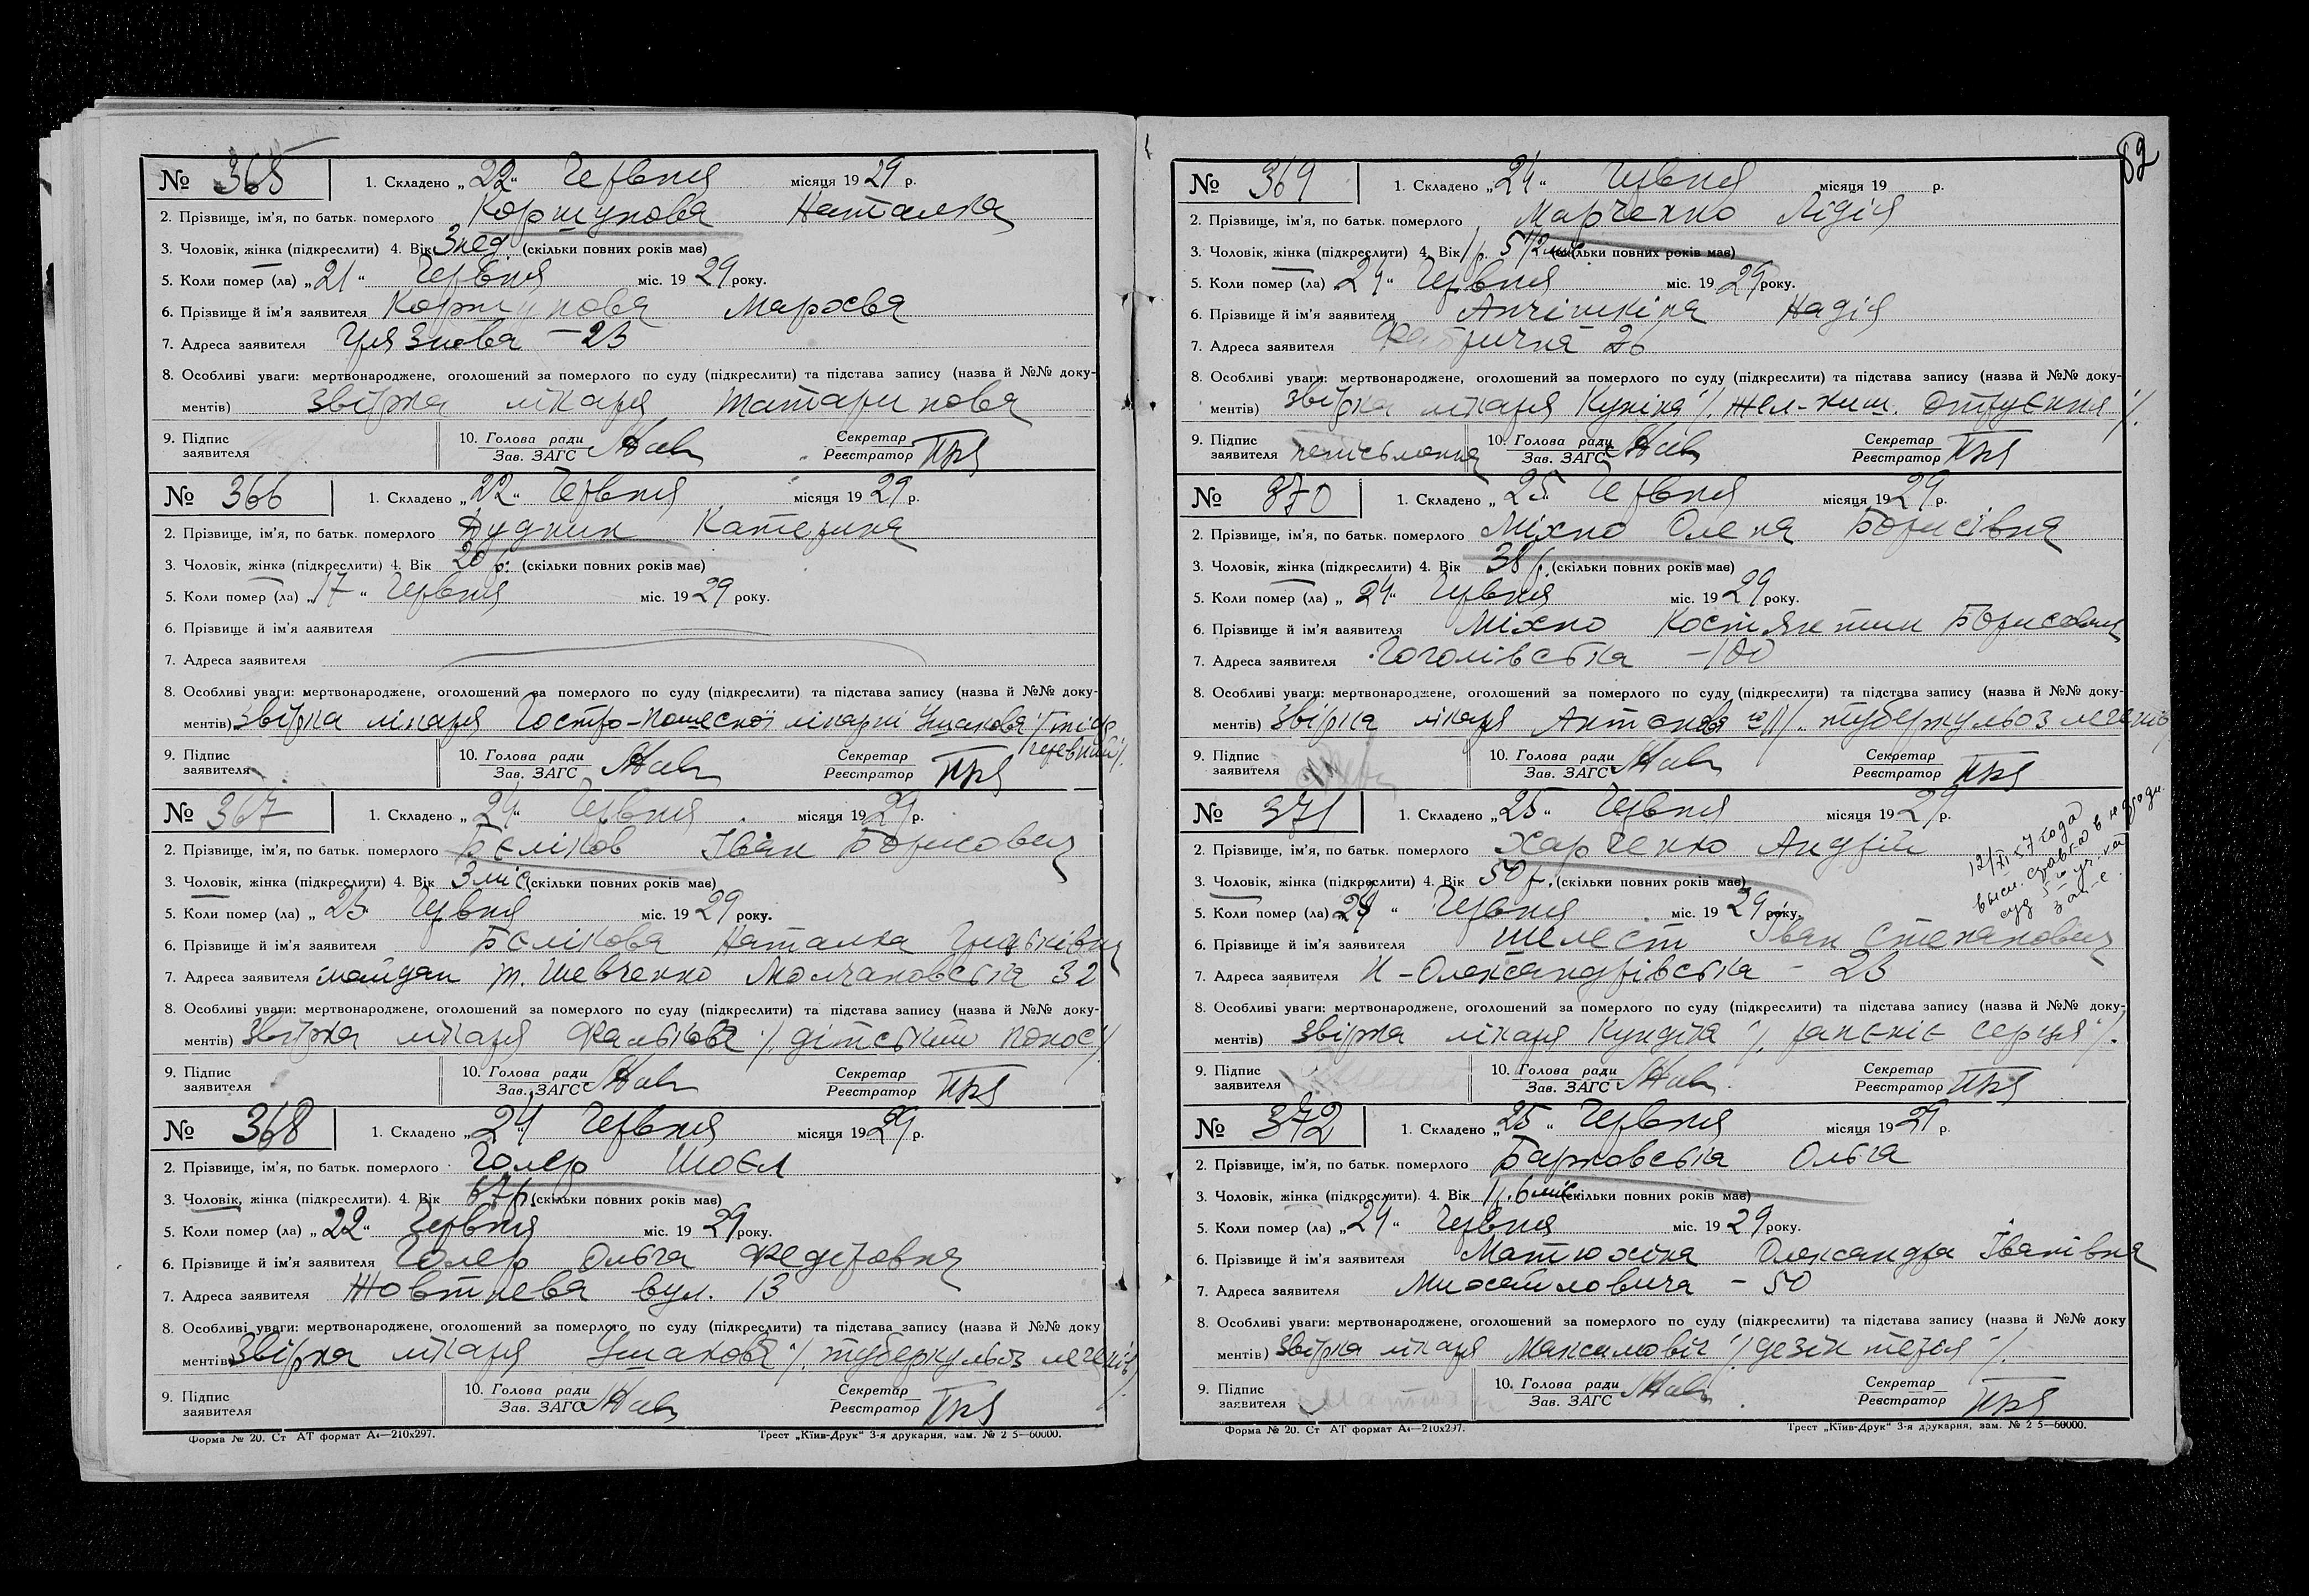 № 365 1. Складено „22“ Червня місяця 1929 р.
2. Прізвище, ім'я, по батьк. померлого Коршунова Наталка
3. Чоловік, жінка (підкреслити) 4. Вік 3 нед. (скільки повних років має)
5. Коли помер (ла) „21“ Червня міс. 1929 року.
6. Прізвище й ім'я заявителя Коршунова
7. Адреса заявителя – 23
8. Особливі уваги: мертвонароджене, оголошений за померлого по суду (підкреслити) та підстава запису (назва й №№ доку-
ментів) Звірка лікаря Татаринова
9. Підпис заявителя 10. Голова ради Зав. ЗАГС Секретар Реєстратор
№ 366 1. Складено „22“ Червня місяця 1929 р.
2. Прізвище, ім'я, по батьк. померлого Дудник Катерина
3. Чоловік, жінка (підкреслити) 4. Вік 20 р. (скільки повних років має)
5. Коли помер (ла) „17“ Червня міс. 1929 року.
6. Прізвище й ім'я заявителя
7. Адреса заявителя
8. Особливі уваги: мертвонароджене, оголошений за померлого по суду (підкреслити) та підстава запису (назва й №№ доку-
ментів) Звірка лікаря Гостро-пошесної лікарні Ушакова
9. Підпис заявителя 10. Голова ради Зав. ЗАГС Секретар Реєстратор
№ 367 1. Складено „24“ Червня місяця 1929 р.
2. Прізвище, ім'я, по батьк. померлого Бєліков Іван Борисович
3. Чоловік, жінка (підкреслити) 4. Вік 3 міс. (скільки повних років має)
5. Коли помер (ла) „23“ Червня міс. 1929 року.
6. Прізвище й ім'я заявителя Бєлікова Наталка
7. Адреса заявителя майдан т. Шевченко Молчановська 32
8. Особливі уваги: мертвонароджене, оголошений за померлого по суду (підкреслити) та підстава запису (назва й №№ доку-
ментів) Звірка лікаря Фалькова /. дітський понос /.
9. Підпис заявителя 10. Голова ради Зав. ЗАГС Секретар Реєстратор
№ 368 1. Складено „24“ Червня місяця 1929 р.
2. Прізвище, ім'я, по батьк. померлого Голер Шоєл
3. Чоловік, жінка (підкреслити). 4. Вік 67 р. (скільки повних років має)
5. Коли помер (ла) „22“ Червня міс. 1929 року.
6. Прізвище й ім'я заявителя Голер Ольга Федоровна
7. Адреса заявителя Жовтнева вул. 13
8. Особливі уваги: мертвонароджене, оголошений за померлого по суду (підкреслити) та підстава запису (назва й №№ доку
ментів) Звірка лікаря Ушакова /. туберкульоз легенів /.
9. Підпис заявителя 10. Голова ради Зав. ЗАГС Секретар Реєстратор
Форма № 20. Ст АТ формат А4—210x297. Трест „Київ-Друк“ 3-я друкарня, зам. № 2 5—60000.
62
№ 369 1. Складено „24“ Червня місяця 19 р.
2. Прізвище, ім'я, по батьк. померлого Марченко Лідія
3. Чоловік, жінка (підкреслити) 4. Вік 1 р. 5 1/2 міс (скільки повних років має)
5. Коли помер (ла) 24“ Червня міс. 1929 року.
6. Прізвище й ім'я заявителя Анчішкіна Надія
7. Адреса заявителя 26
8. Особливі уваги: мертвонароджене, оголошений за померлого по суду (підкреслити) та підстава запису (назва й №№ доку-
ментів) Звірка лікаря Куніна /. жел-киш. отруєння /.
9. Підпис заявителя неписьменна 10. Голова ради Зав. ЗАГС Секретар Реєстратор
№ 370 1. Складено „25“ Червня місяця 1929 р.
2. Прізвище, ім'я, по батьк. померлого Міхно Олена Борисівна
3. Чоловік, жінка (підкреслити) 4. Вік 38 р. (скільки повних років має)
5. Коли помер (ла) „24“ Червня міс. 1929 року.
6. Прізвище й ім'я заявителя Міхно Костянтин Борисович
7. Адреса заявителя Гоголівська –100
8. Особливі уваги: мертвонароджене, оголошений за померлого по суду (підкреслити) та підстава запису (назва й №№ доку-
ментів) Звірка лікаря Антонова /. туберкульоз легенів
9. Підпис заявителя 10. Голова ради Зав. ЗАГС Секретар Реєстратор
№ 371 1. Складено „25“ Червня місяця 1929 р.
2. Прізвище, ім'я, по батьк. померлого Харченко Андрій
12/XI 57 года
3. Чоловік, жінка (підкреслити) 4. Вік 50 р. (скільки повних років має)
5. Коли помер (ла) 24 “ Червня міс. 1929 року.
6. Прізвище й ім'я заявителя Шелест Іван Степанович
7. Адреса заявителя Н-Олександрівська – 23
8. Особливі уваги: мертвонароджене, оголошений за померлого по суду (підкреслити) та підстава запису (назва й №№ доку-
ментів) Звірка лікаря Кундіна /. серця /.
9. Підпис заявителя 10. Голова ради Зав. ЗАГС Секретар Реєстратор
№ 372 1. Складено „25“ Червня місяця 1929 р.
2. Прізвище, ім'я, по батьк. померлого Барковська Ольга
3. Чоловік, жінка (підкреслити). 4. Вік 1 р. 6 міс (скільки повних років має)
5. Коли помер (ла) „24“ Червня міс. 1929 року.
6. Прізвище й ім'я заявителя Матюхіна Олександра Іванівна
7. Адреса заявителя Михайловича – 50
8. Особливі уваги: мертвонароджене, оголошений за померлого по суду (підкреслити) та підстава запису (назва й №№ доку
ментів) Звірка лікаря Максимовіч /. дезінтерія /.
9. Підпис заявителя 10. Голова ради Зав. ЗАГС Секретар Реєстратор
Форма № 20. Ст АТ формат А4—210x297. Трест „Київ-Друк“ 3-я друкарня, зам. № 2 5—60000.